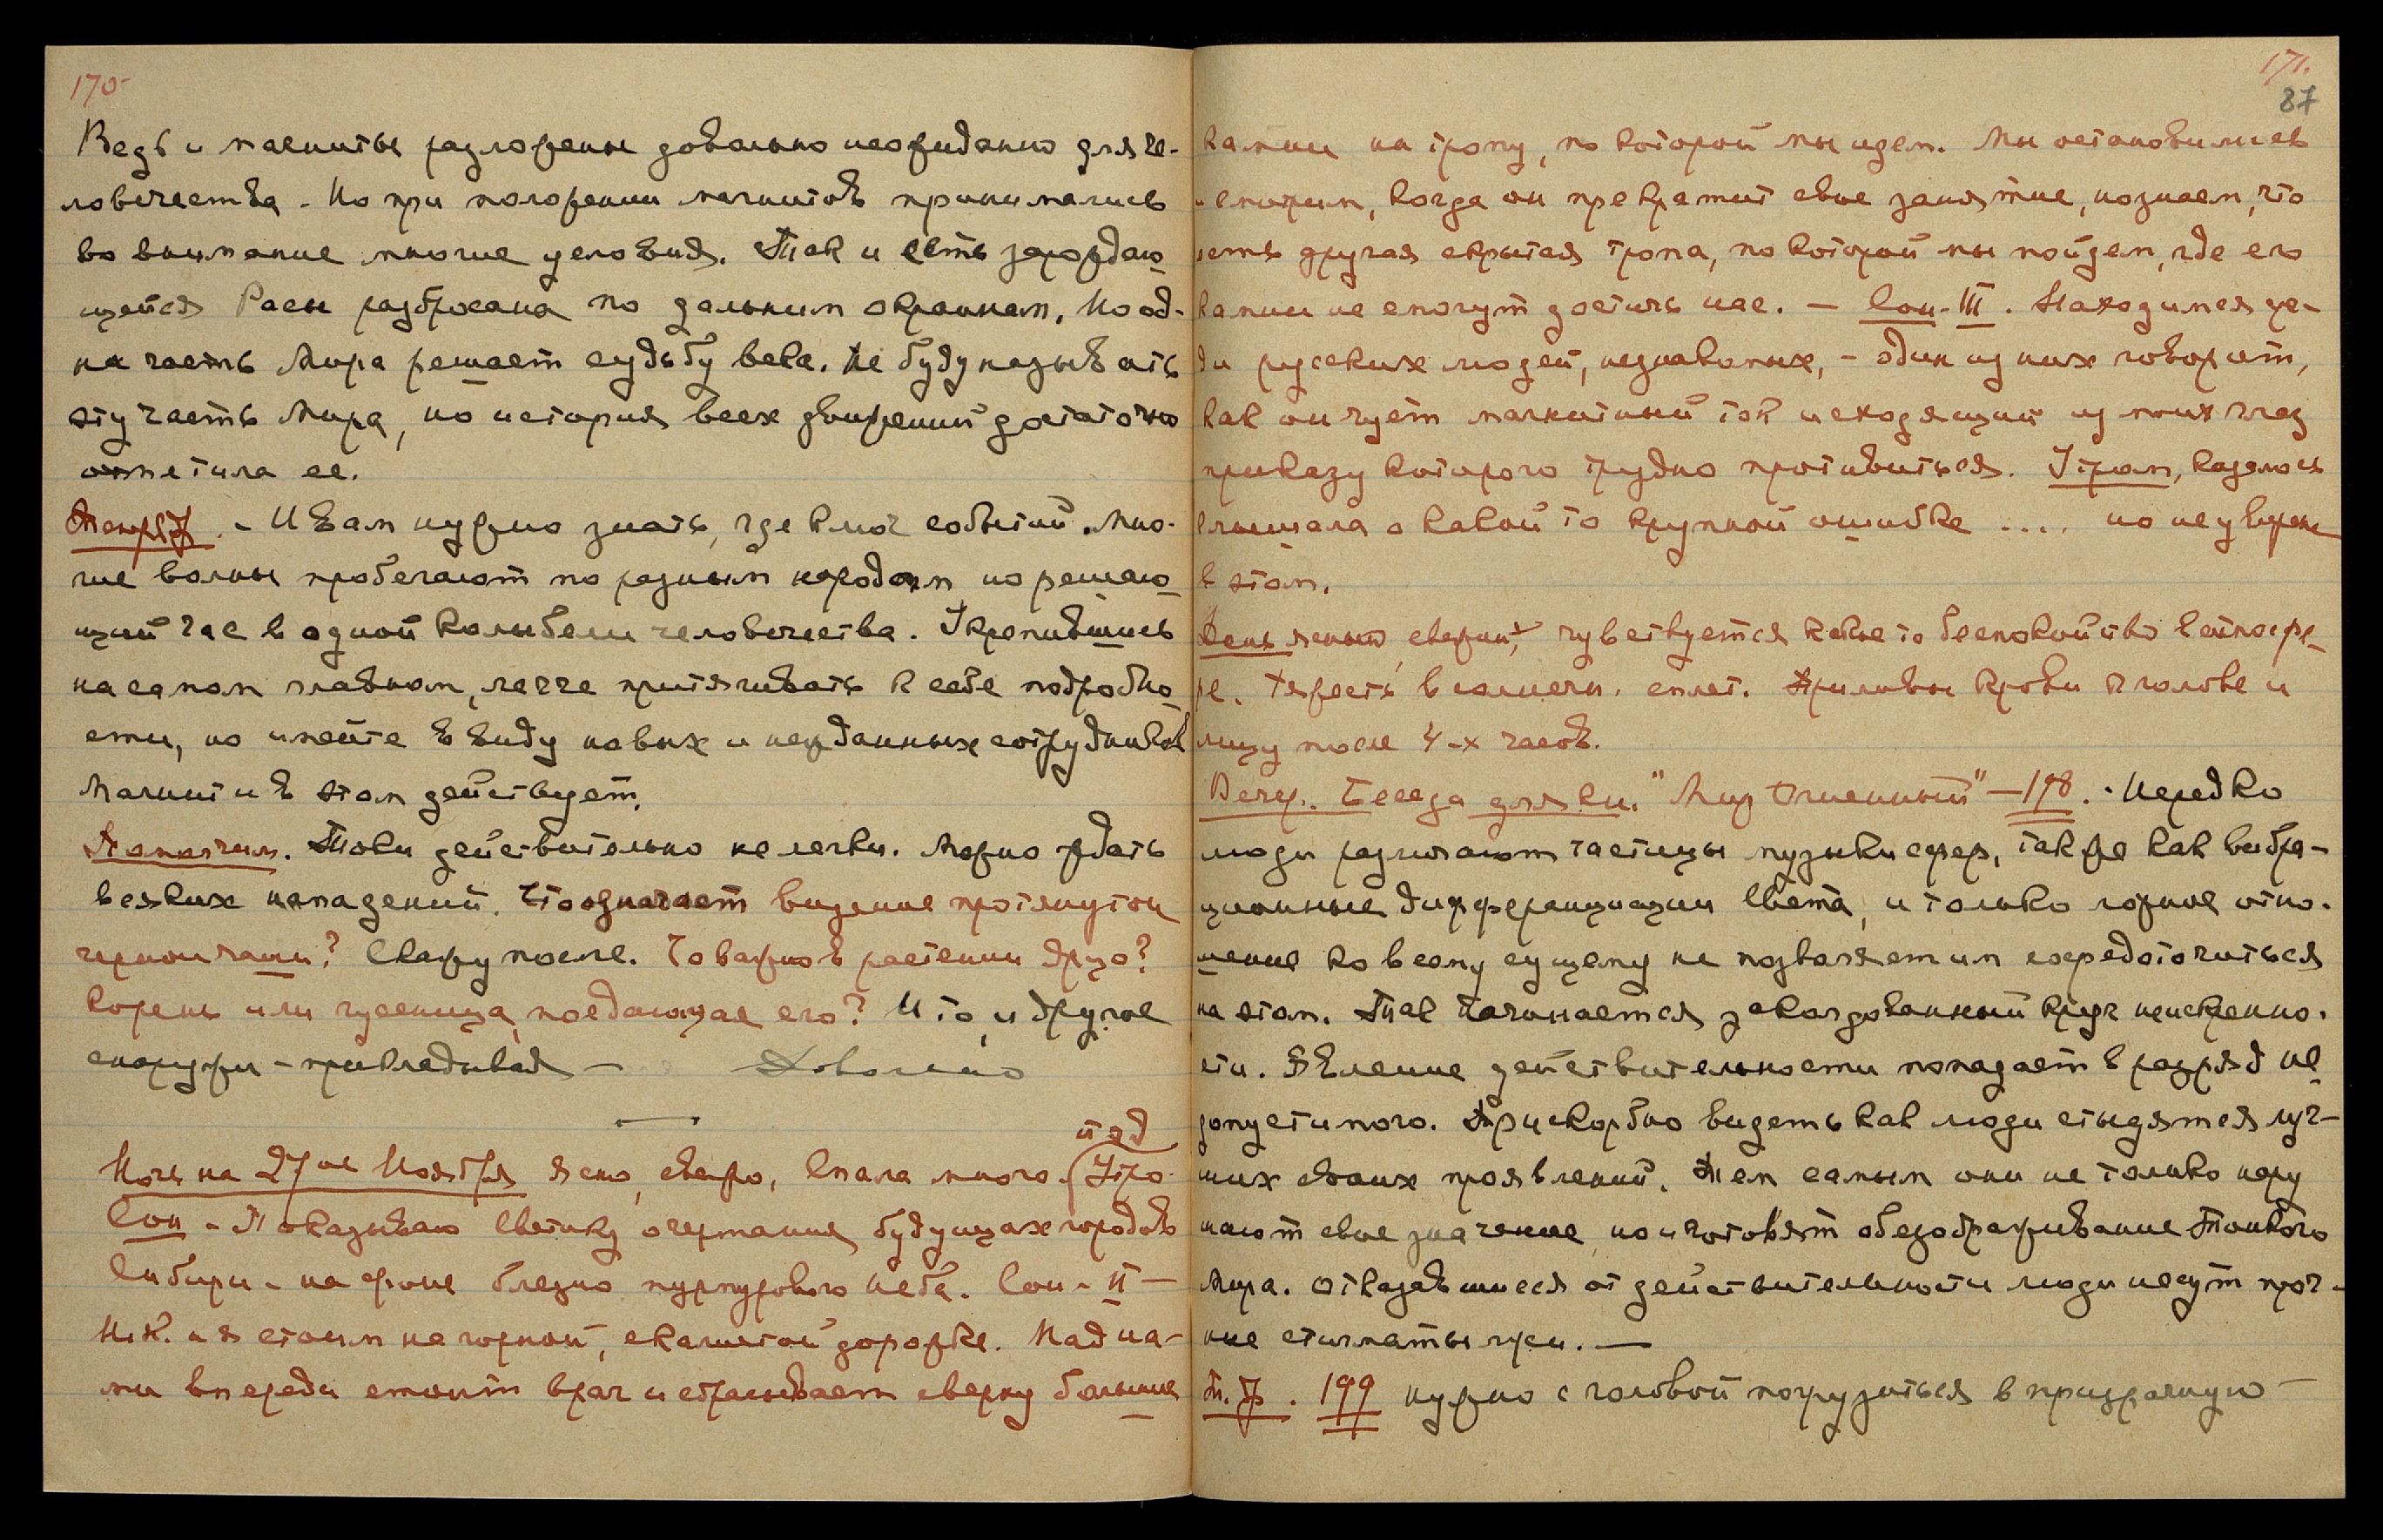 170
Ведь и магниты разложены довольно неожиданно для че-
ловечества. Но при положении магнитов принимались
во внимание многие условия. Так и есть зарождаю-
щейся Расы разбросана по дальним окраинам, но од-
на часть Мира решает судьбу века. Не буду называть
эту часть Мира, но история всех движений достаточно
отметила ее.
– И Вам нужно знать, где ключ событий. Мно-
гие волны пробегают по разным народам, но решаю-
щий час в одной колыбели человечества. Укрепившись
на самом главном, легче притягивать к себе подробно-
сти, но имейте в виду новых и нежданных сотрудников
Магнит и в этом действует.
Закончим. Токи действительно нелегки. Можно ждать
всяких нападений. Что означает видение протянутой
черной чаши? Скажу после. Что важно в растении Дуцо?
корень или гусеница, поедающая его? И то, и другое
снаружи – прикладывая – Довольно
Ночь на 27ое Ноября ясно, свежо, спала много. (Утро
под
Сон – Показываю Светику очертания будущих городов
Сибири – на фоне бледно пурпурового неба. Сон – II –
Н.К. и я стоим на горной, скалистой дорожке. Над на-
ми впереди стоит враг и сбрасывает сверху большие
171.
87
камни на тропу, по которой мы идем. Мы остановились
и смотрим, когда он прекратит свое занятие, но знаем, что
есть другая скрытая тропа, по которой мы пойдем, где его
камни не смогут достичь нас. – Сон – III. Находимся сре-
ди русских людей, незнакомых, – один из них говорит,
как он чует магнитный ток исходящий из моих глаз
приказу которого трудно противиться. Утром, казалось
слышала о какой то крупной ошибке .... но не уверена
в этом.
День ясный, свежий, чувствуется какое то беспокойство в атмосфе-
ре. Тяжесть в солнечн. сплет. Приливы крови к голове и
лицу после 4-х часов.
Вечер. Беседа для кн. "Мир Огненный" – 198. · Нередко
люди различают частицы музыки сфер, также как вибра-
ционные дифференциации света, и только ложное отно-
шение ко всему сущему не позволяет им сосредоточиться
на этом. Так начинается заколдованный круг неискренно-
сти. Явление действительности попадает в разряд не-
допустимого. Прискорбно видеть как люди стыдятся луч-
ших своих проявлений. Тем самым они не только нару
шают свое значение, но и готовят обезображивание Тонкого
Мира. Отказавшиеся от действительности люди несут проч-
ные стигматы лжи. —
199 нужно с головой погрузиться в призрачную —